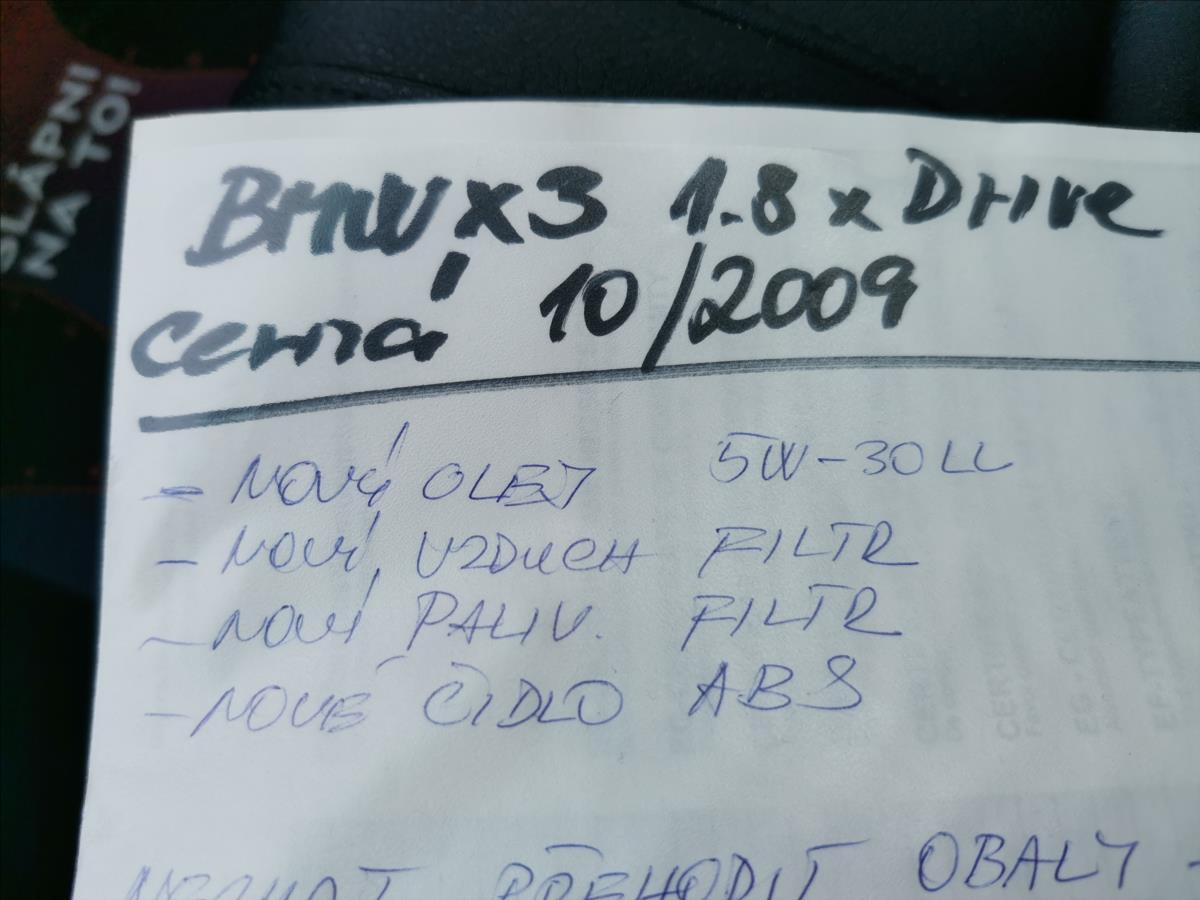 ŠLÁPNI
NA TO!
BMW x3 1.8 x Drive
Černá 10/2009
- NOVÝ OLEJ 5W-30LL
- NOVÝ VZDUCH FILTR
- NOVÝ PALIV. FILTR
- NOVÉ ČIDLO ABS
NECHAT PŘEHODIT OBALY -